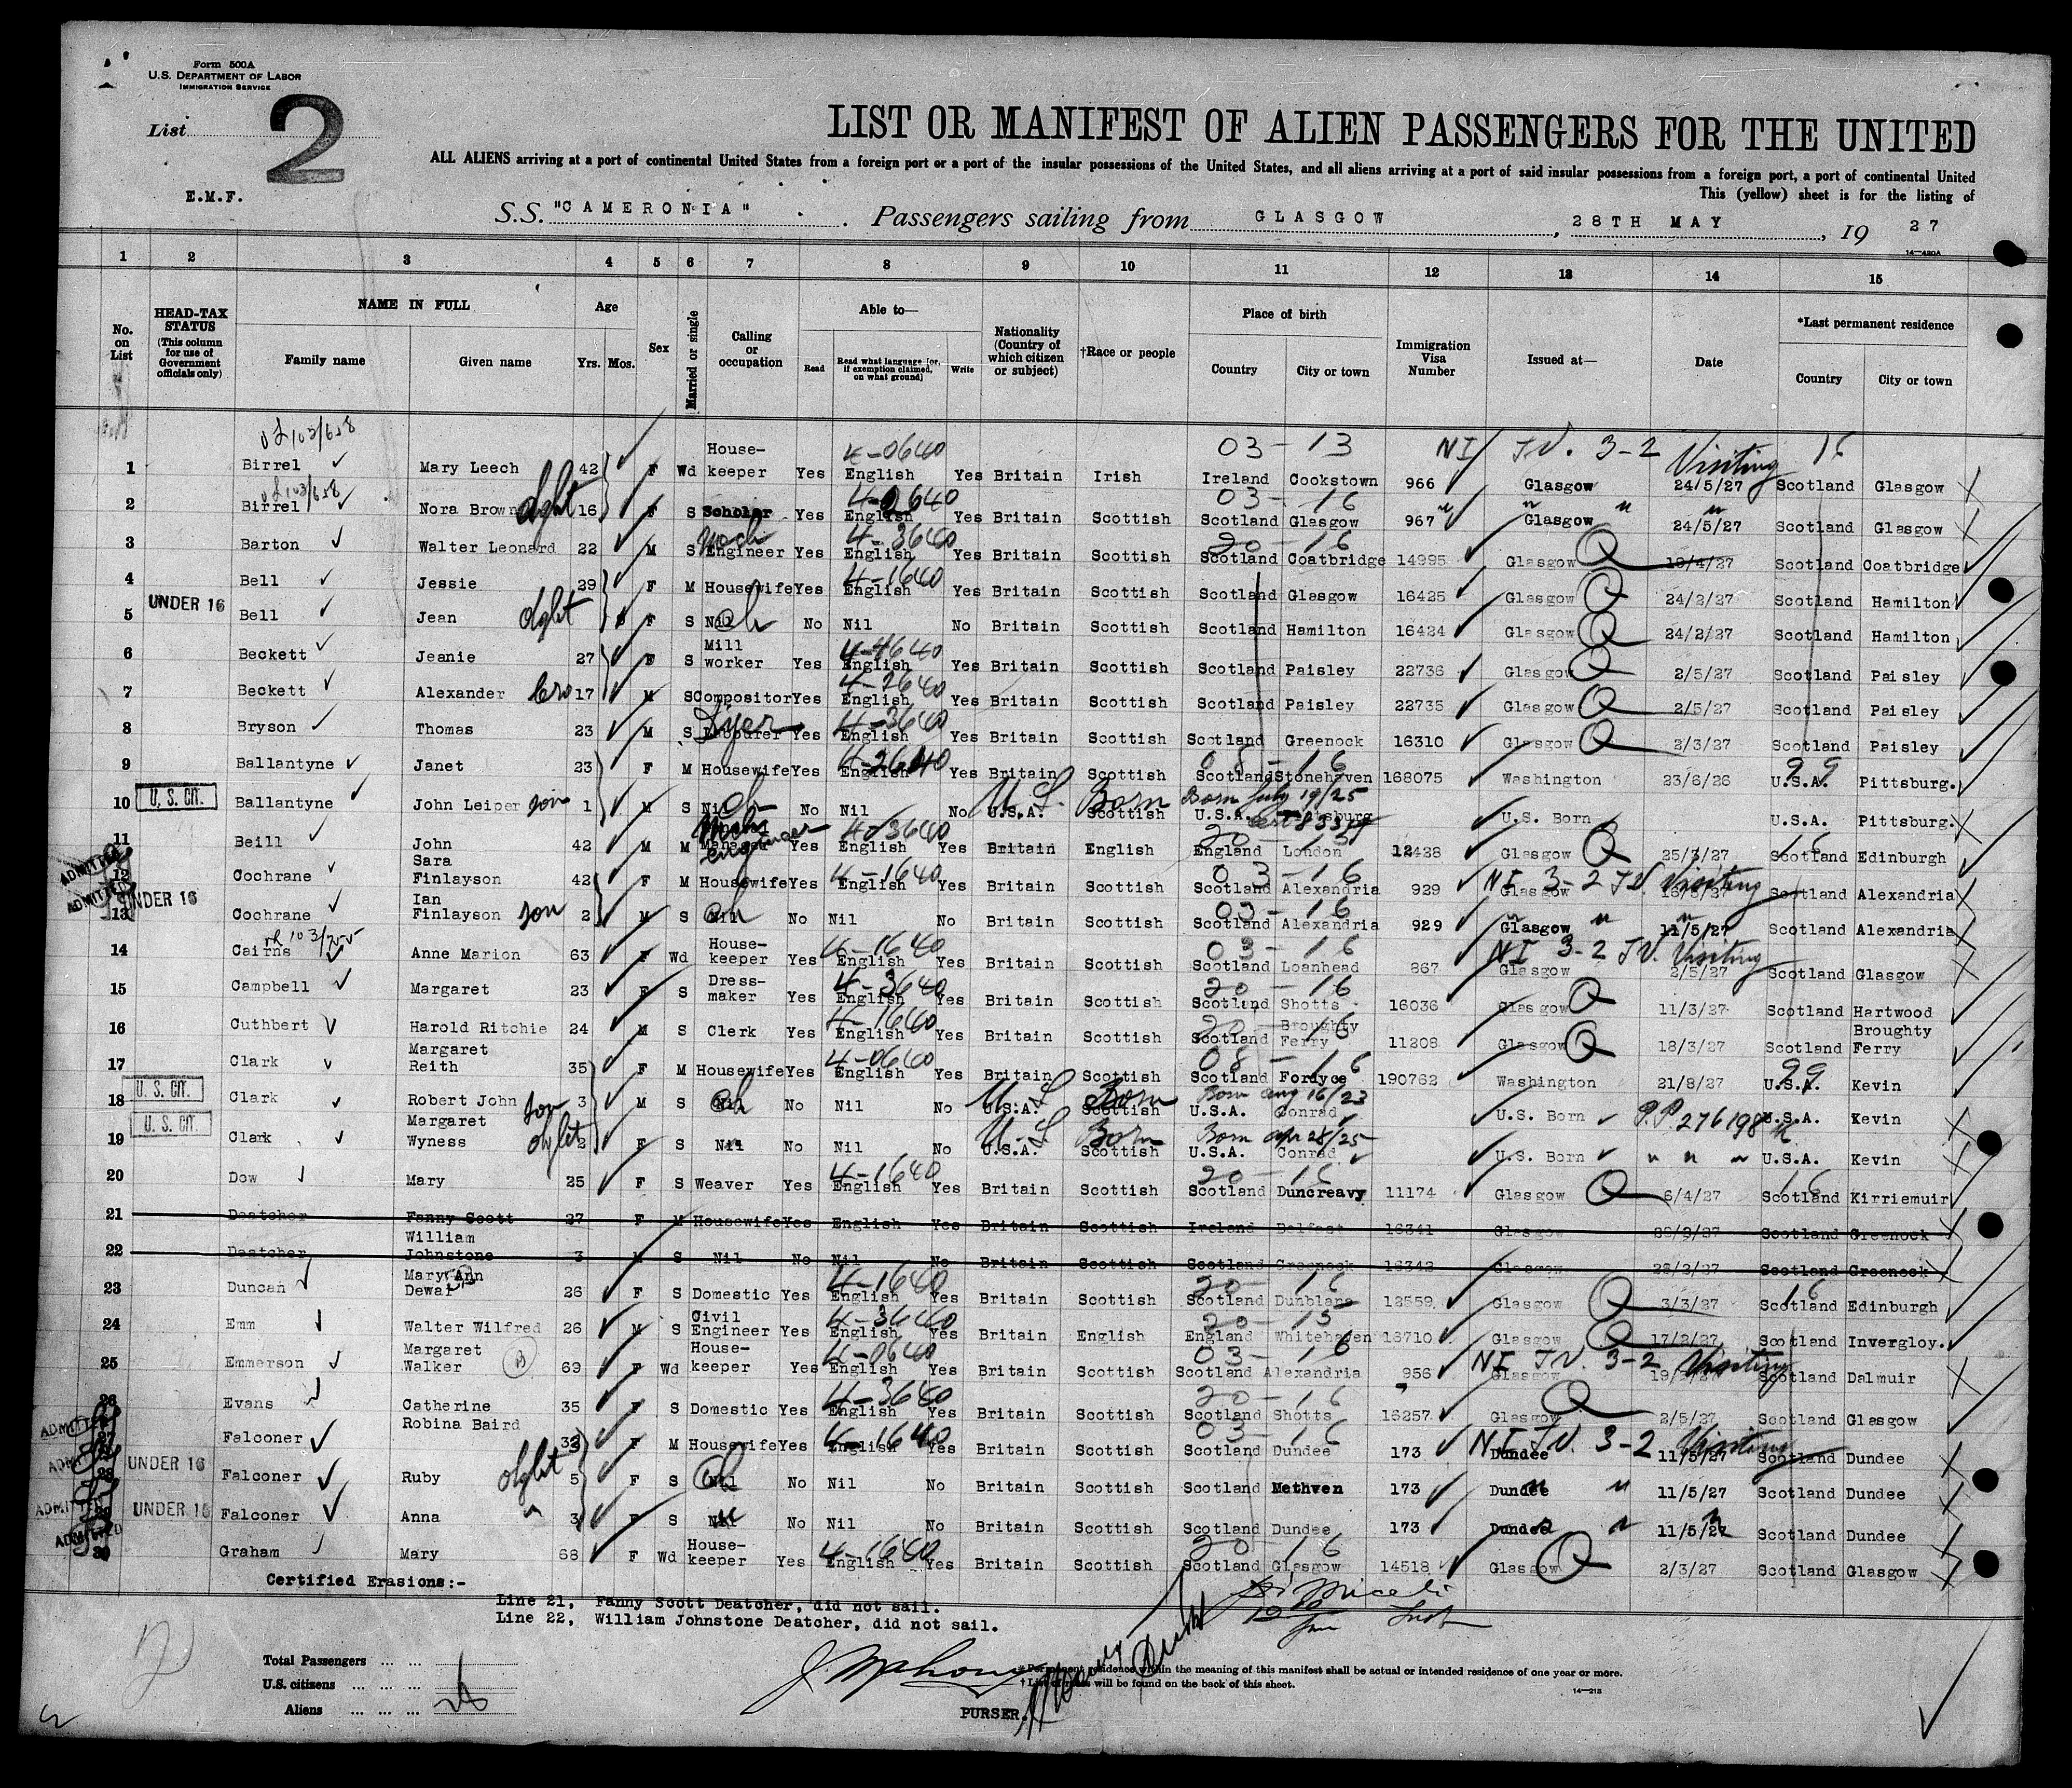 Form 500A
U.S. DEPARTMENT OF LABOR
IMMIGRATION SERVICE
List 2
LIST OR MANIFEST OF ALIEN PASSENGERS FOR THE UNITED
ALL ALIENS arriving at a port of continental United States from a foreign port or a port of the insular possessions of the United States, and all aliens arriving at a port of said insular possessions from a foreign port, a port of continental United
This (yellow) sheet is for the listing of
E.M.F.
S.S. "CAMERONIA" Passengers sailing from GLASGOW, 28TH MAY, 19 27
14—480A
1 2 3 4 5 6 7 8 9 10 11 12 13 14 15
No. on List
HEAD-TAX STATUS (This column for use of Government officials only)
NAME IN FULL Family name Given name
Age Yrs. Mos.
Sex
Married or single
Calling or occupation
Able to— Read Read what language [or, if exemption claimed, on what ground] Write
Nationality (Country of which citizen or subject)
†Race or people
Place of birth Country City or town
Immigration Visa Number
Issued at—
Date
*Last permanent residence Country City or town
03-13 NI/ TV. 3-2 Visiting 16
1 Birrel Mary Leech 42 F Wd House-keeper Yes 4-0640 English Yes Britain Irish Ireland Cookstown 966 Glasgow 24/5/27 Scotland Glasgow
2 Birrel Nora Brown dght 16 F S Scholar Yes 4-0640 English Yes Britain Scottish 03-16 Scotland Glasgow 967 Glasgow 24/5/27 Scotland Glasgow
3 Barton Walter Leonard 22 M S Engineer Yes 4-3640 English Yes Britain Scottish 20-16 Scotland Coatbridge 14995 Glasgow 19/4/27 Scotland Coatbridge
4 Bell Jessie 29 F M Housewife Yes 4-1640 English Yes Britain Scottish Scotland Glasgow 16425 Glasgow 24/2/27 Scotland Hamilton
5 UNDER 16 Bell Jean dght F S Nil No Nil No Britain Scottish Scotland Hamilton 16424 Glasgow 24/2/27 Scotland Hamilton
6 Beckett Jeanie 27 F S Mill worker Yes 4-4640 English Yes Britain Scottish Scotland Paisley 22736 Glasgow 2/5/27 Scotland Paisley
7 Beckett Alexander bro 17 M S Compositor Yes 4-2640 English Yes Britain Scottish Scotland Paisley 22735 Glasgow 2/5/27 Scotland Paisley
8 Bryson Thomas 23 M S Labourer Dyer Yes 4-3640 English Yes Britain Scottish Scotland Greenock 16310 Glasgow 2/3/27 Scotland Paisley
9 Ballantyne Janet 23 F M Housewife Yes 4-2640 English Yes Britain Scottish 08-16 Scotland Stonehaven 168075 Washington 23/6/26 99 U.S.A. Pittsburg.
10 U.S. CIT. Ballantyne John Leiper son 1 M S Nil No Nil No U.S.A. Scottish U.S. Born Born July 19/25 U.S.A. U.S. Born U.S.A. Pittsburg.
11 Beill John 42 M M engineer Yes 4-3640 English Yes Britain English England London 12428 Glasgow Scotland Edinburgh
12 ADMITTED Cochrane Sara Finlayson 42 F M Housewife Yes 4-1640 English Yes Britain Scottish 03-16 Scotland Alexandria 929 Glasgow NI 3-2 TV. Visiting Scotland Alexandria
13 ADMITTED UNDER 16 Cochrane Ian Finlayson son 2 M S Nil No Nil No Britain Scottish 03-16 Scotland Alexandria 929 Glasgow 11/5/27 Scotland Alexandria
14 Cairns Anne Marion 63 F Wd House-keeper Yes 4-1640 English Yes Britain Scottish 03-16 Scotland Loanhead 867 Glasgow NI 3-2 TV. Visiting 2/5/27 Scotland Glasgow
15 Campbell Margaret 23 F S Dress-maker Yes 4-3640 English Yes Britain Scottish 20-16 Scotland Shotts 16036 Glasgow 11/3/27 Scotland Hartwood
16 Cuthbert Harold Ritchie 24 M S Clerk Yes 4-1640 English Yes Britain Scottish 20-16 Scotland Broughty Ferry 11208 Glasgow 18/3/27 Scotland Broughty Ferry
17 Clark Margaret Reith 35 F M Housewife Yes 4-0640 English Yes Britain Scottish 08-16 Scotland Fordyce 190762 Washington 21/8/27 99 U.S.A. Kevin
18 U.S. CIT. Clark Robert John son 3 M S Nil No Nil No U.S.A. Scottish U.S. Born Born Aug 16/23 U.S.A. Conrad U.S. Born P.P 276198 U.S.A. Kevin
19 U.S. CIT. Clark Margaret Wyness dght 2 F S Nil No Nil No U.S.A. Scottish U.S. Born Born Apr 28/25 U.S.A. Conrad U.S. Born " " " U.S.A. Kevin
20 Dow Mary 25 F S Weaver Yes 4-1640 English Yes Britain Scottish 20-16 Scotland Duncreavy 11174 Glasgow 6/4/27 16 Scotland Kirriemuir
21 Deatcher Fanny Scott 27 F M Housewife Yes English Yes Britain Scottish Ireland Belfast 16341 Glasgow Scotland Greenock
22 Deatcher William Johnstone 3 M S Nil No Nil No Britain Scottish Scotland Greenock 16342 Glasgow Scotland Greenock
23 Duncan Mary Ann Dewar 26 F S Domestic Yes 4-1640 English Yes Britain Scottish 20-16 Scotland Dunblane 12559 Glasgow 3/3/27 16 Scotland Edinburgh
24 Emm Walter Wilfred 26 M S Civil Engineer Yes 4-3640 English Yes Britain English 20-15 England Whitehaven 16710 Glasgow 17/2/27 Scotland Invergloy.
25 Emmerson Margaret Walker 69 F Wd House-keeper Yes 4-0640 English Yes Britain Scottish 03-16 Scotland Alexandria 956 Glasgow NI TV. 3-2 Visiting Scotland Dalmuir
26 Evans Catherine 35 F S Domestic Yes 4-3640 English Yes Britain Scottish 20-16 Scotland Shotts 16257 Glasgow 2/5/27 Scotland Glasgow
27 ADMITTED Falconer Robina Baird F M Housewife Yes 4-1640 English Yes Britain Scottish 03-16 Scotland Dundee 173 Dundee NI TV. 3-2 Visiting 11/5/27 Scotland Dundee
28 ADMITTED UNDER 16 Falconer Ruby dght 5 F S Nil No Nil No Britain Scottish Scotland Methven 173 Dundee 11/5/27 Scotland Dundee
29 ADMITTED UNDER 16 Falconer Anna " 3 F S Nil No Nil No Britain Scottish Scotland Dundee 173 Dundee 11/5/27 Scotland Dundee
30 ADMITTED Graham Mary 68 F Wd House-keeper Yes 4-1640 English Yes Britain Scottish 20-16 Scotland Glasgow 14518 Glasgow 2/3/27 Scotland Glasgow
Certified Erasions:-
Line 21, Fanny Scott Deatcher, did not sail.
Line 22, William Johnstone Deatcher, did not sail.
Total Passengers ... ...
U.S. citizens ... ... ...
Aliens ... ... ...
PURSER.
*Permanent residence within the meaning of this manifest shall be actual or intended residence of one year or more.
†List of races will be found on the back of this sheet.
14—213